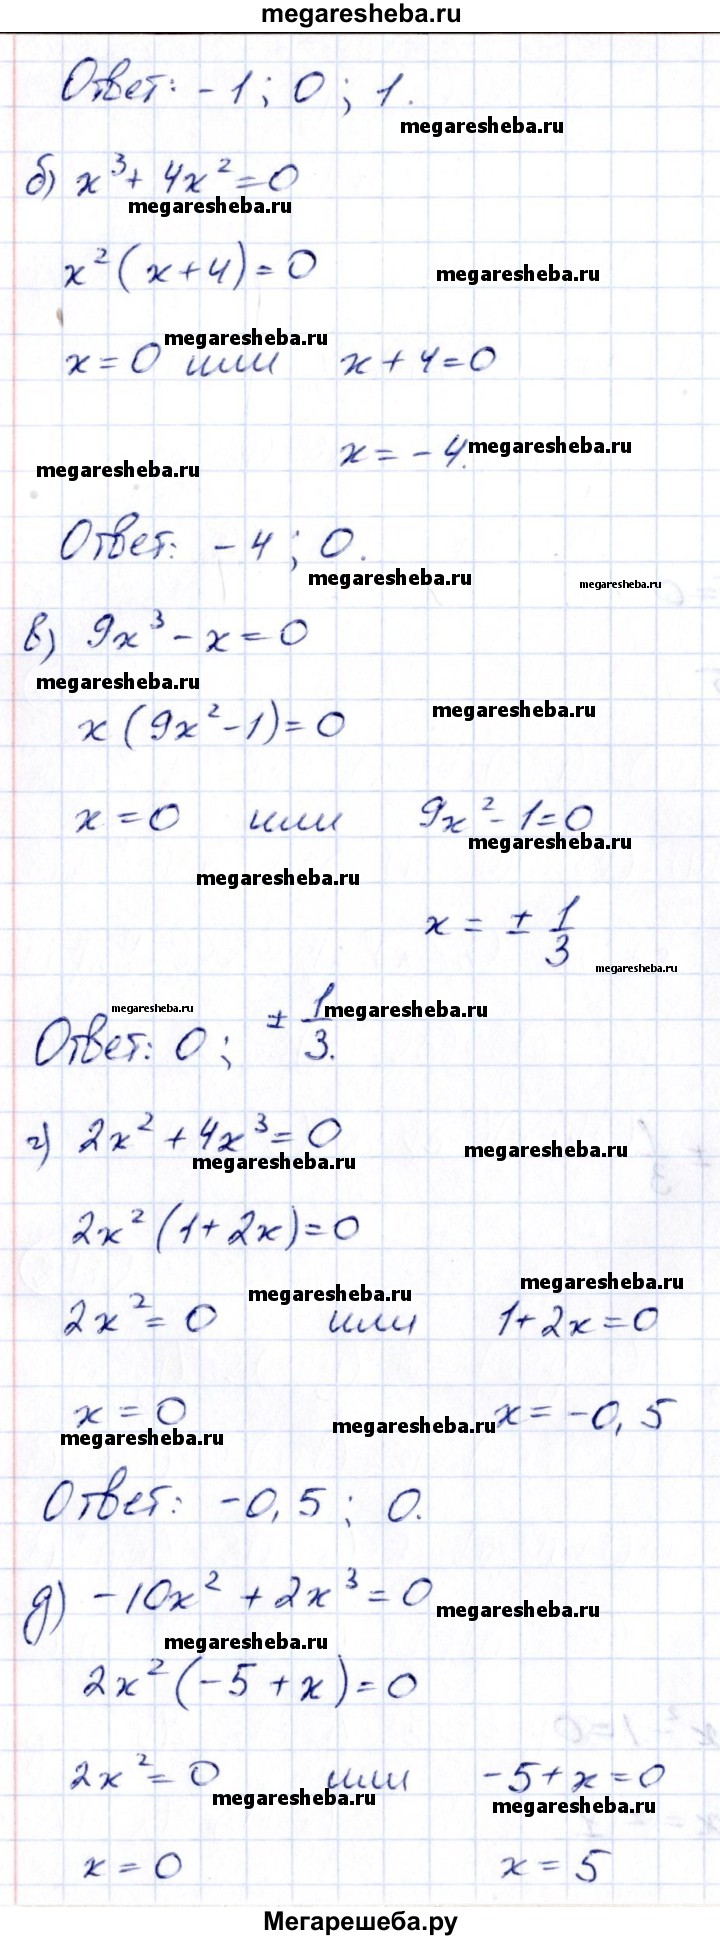 megaresheba.ru
Ответ: -1; 0; 1.
megaresheba.ru
б) x³ + 4x² = 0
megaresheba.ru
x² (x + 4) = 0
megaresheba.ru
megaresheba.ru
x = 0 или x + 4 = 0
x = -4.
megaresheba.ru
megaresheba.ru
Ответ: -4; 0.
megaresheba.ru
megaresheba.ru
в) 9x³ - x = 0
megaresheba.ru
x (9x² - 1) = 0
megaresheba.ru
x = 0 или 9x² - 1 = 0
megaresheba.ru
megaresheba.ru
x = ± 1/3
megaresheba.ru
megaresheba.ru
megaresheba.ru
Ответ: 0; ± 1/3.
г) 2x² + 4x³ = 0
megaresheba.ru
megaresheba.ru
2x² (1 + 2x) = 0
megaresheba.ru
megaresheba.ru
2x² = 0 или 1 + 2x = 0
x = 0 x = -0,5
megaresheba.ru
megaresheba.ru
Ответ: -0,5; 0.
д) -10x² + 2x³ = 0
megaresheba.ru
megaresheba.ru
2x² (-5 + x) = 0
2x² = 0 или -5 + x = 0
megaresheba.ru
megaresheba.ru
x = 0 x = 5
Мегарешеба.ру